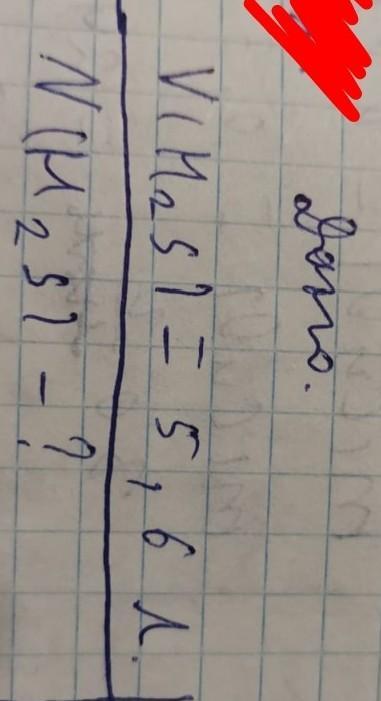 Дано.
V(H2S) = 5,6 л.
N(H2S) - ?